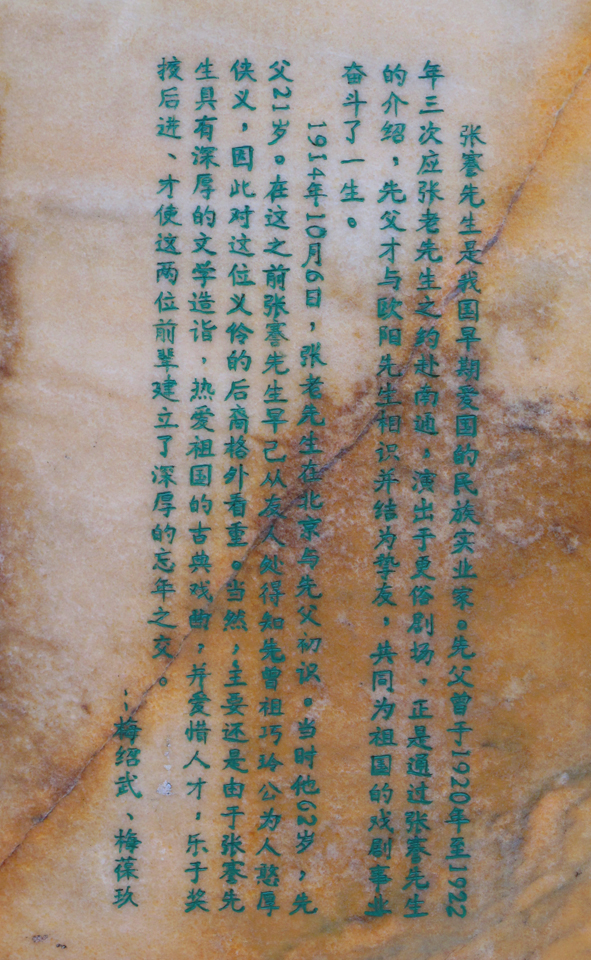 张謇先生是我国早期爱国的民族实业家。先父曾于1920年至1922
年三次应张老先生之约赴南通，演出于更俗剧场，正是通过张謇先生
的介绍，先父才与欧阳先生相识并结为挚友，共同为祖国的戏剧事业
奋斗了一生。
1914年10月6日，张老先生在北京与先父初识。当时他62岁，先
父21岁。在这之前张謇先生早已从友人处得知先曾祖巧玲公为人憨厚
侠义，因此对这位义伶的后裔格外看重。当然，主要还是由于张謇先
生具有深厚的文学造诣，热爱祖国的古典戏曲，并爱惜人才，乐于奖
掖后进、才使这两位前辈建立了深厚的忘年之交。
--梅绍武、梅葆玖